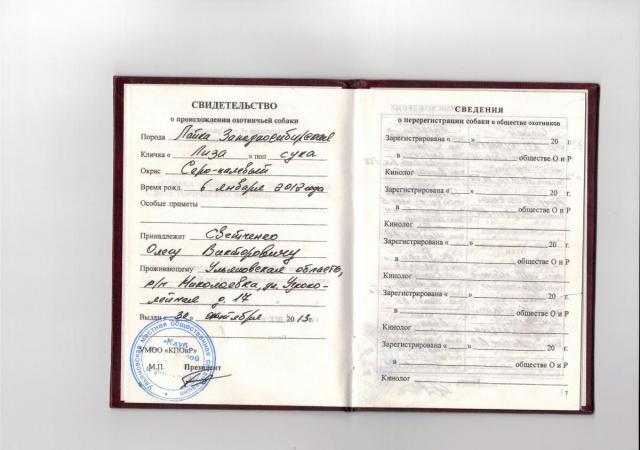 СВИДЕТЕЛЬСТВО
о происхождении охотничьей собаки
Порода Лайка Западносибирская
Кличка « Лиза » пол сука
Окрас Серо-палевый
Время рожд. 6 января 2012 года
Особые приметы
Принадлежит
Олегу Викторовичу
Проживающему Ульяновская область,
р/п Николаевка, ул.
д. 17
Выдан « 30 » октября 2013г.
УМОО «КПОиР»
М.П. Президент
СВЕДЕНИЯ
о перерегистрации собаки в обществе охотников
Зарегистрирована « » 20 г.
в обществе О и Р
Кинолог
Зарегистрирована « » 20 г.
в обществе О и Р
Кинолог
Зарегистрирована « » 20 г.
в обществе О и Р
Кинолог
Зарегистрирована « » 20 г.
в обществе О и Р
Кинолог
Зарегистрирована « » 20 г.
в обществе О и Р
Кинолог
7